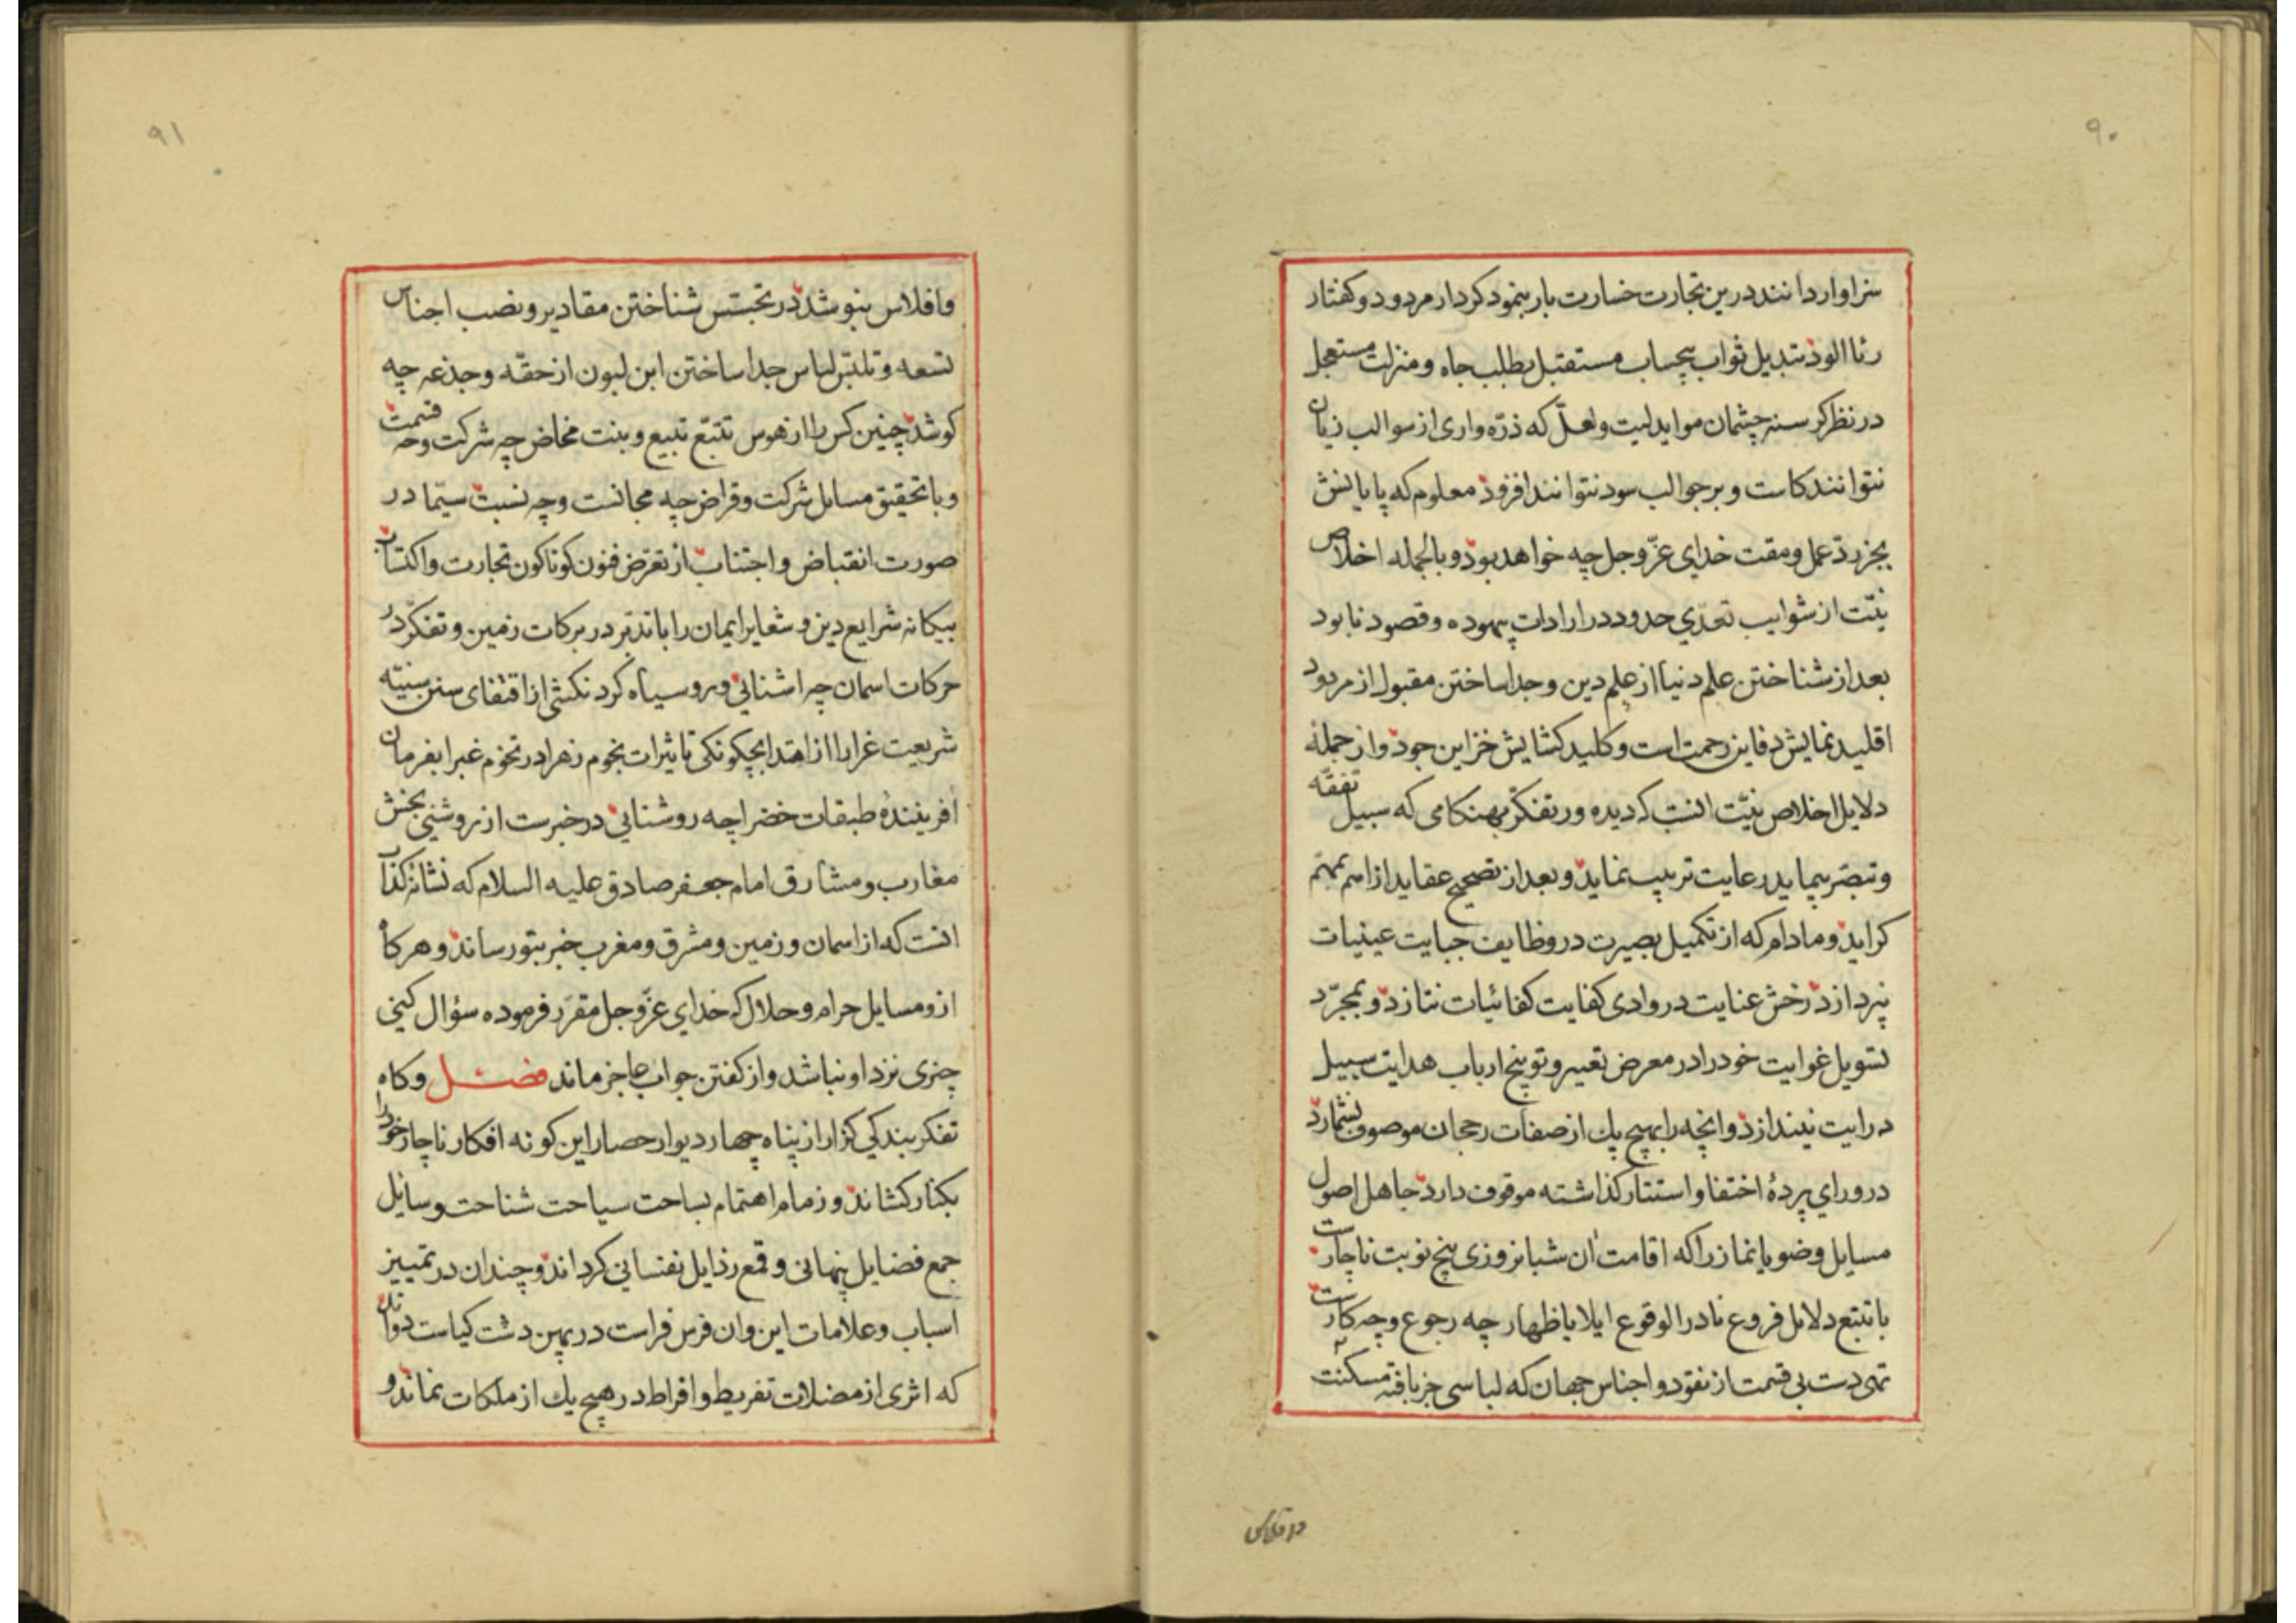 ۹۰
سزاوار دانند درین تجارت خسارت بار بنمود کردار مردود و کفتار
رئا الوذ تبدیل ثواب بیحساب مستقبل بطلب جاه و منزلت مستعجل
در نظر کرسنه چشمان مواید لیت و لعلّ که ذرّه واری از سوالب زیان
نتوانند کاست و بر جوالب سود نتوانند افزوذ معلوم که پایانش
بجز ردّ عمل و مقت خدای عزّ و جل چه خواهد بوذ و بالجمله اخلاص
نیّت از شوایب تعدّی حدود در ارادات بیهوده و قصود نابود
بعد از شناختن علم دنیا از علم دین و جدا ساختن مقبول از مردود
اقلید نمایش دفاین رحمت است و کلید کشایش خزاین جوذ و از جملهٔ
دلایل اخلاص نیّت انست که دیده ور تفکّر بهنکامی که سبیل تفقّه
و تبصّر پیماید رعایت ترتیب نمایذ و بعد از تصحیح عقاید از اهم بمهتم
کراید و مادام که از تکمیل بصیرت در وظایف جبایت عینیات
نپردازذ رخش عنایت در وادی کفایت کفائیات نتازذ و بمجرّد
تسویل غوایت خود را در معرض تعییر و توبیخ ارباب هدایت سبیل
درایت نیندازذ و انچه را بهیچ یك از صفات رجحان موصوف نشمارد
در ورای پردهٔ اختفا و استتار کذاشته موقوف دارد جاهل اصول
مسایل وضو یا نماز را که اقامت ان شبانروزی پنج نوبت ناچارست
با تتبع دلایل فروع نادر الوقوع ایلا یا ظهار چه رجوع و چه کارست
تهی دست بی قسمت از نقود و اجناس جهان که لباسی جز بافته مسکنت
۹۱
و افلاس نپوشد در تجسّس شناختن مقادیر و نصب اجناس
تسعه و تلبّس لباس جدا ساختن ابن لبون از حقّه و جذعه چه
کوشد چنین کس را از هوس تتبّع تبیع و بنت مخاض چه شرکت و چه قسمت
و با تحقیق مسایل شرکت و قراض چه مجانست و چه نسبت سیّما در
صورت انقباض و اجتناب از تعرّض فنون کوناکون تجارت و اکتساب
بیکانه شرایع دین و شعایر ایمان را با تدبّر در برکات زمین و تفکّر در
حرکات اسمان چه اشنائی و رو سیاه کرد نکشی از اقتفای سنن سنیّه
شریعت غرارا از اهتدا بچکونکی تاثیرات نجوم زهرا در تخوم غبرا بفرمان
افرینندهٔ طبقات خضرا چه روشنایی در خبرست از روشنی بخش
مغارب و مشارق امام جعفر صادق علیه السلام که نشانه کذاب
انست که از اسمان و زمین و مشرق و مغرب خبر بتو رساند و هرکاه
ازو مسایل حرام و حلال که خدای عزّ و جل مقرّر فرموده سؤال کنی
چیزی نزد او نباشد و از کفتن جواب عاجز ماند فصل وکاه
تفکر بندکی کزار از پناه چهار دیوار حصار این کونه افکار ناچار خود را
بکنار کشاند و زمام اهتمام بساحت سیاحت شناخت وسایل
جمع فضایل پنهانی و قمع رذایل نفسانی کرداند و چندان در تمییز
اسباب و علامات این و ان فرس فراست در پهن دشت کیاست دواند
که اثری از مضلات تفریط و افراط در هیچ یك از ملکات نماند و